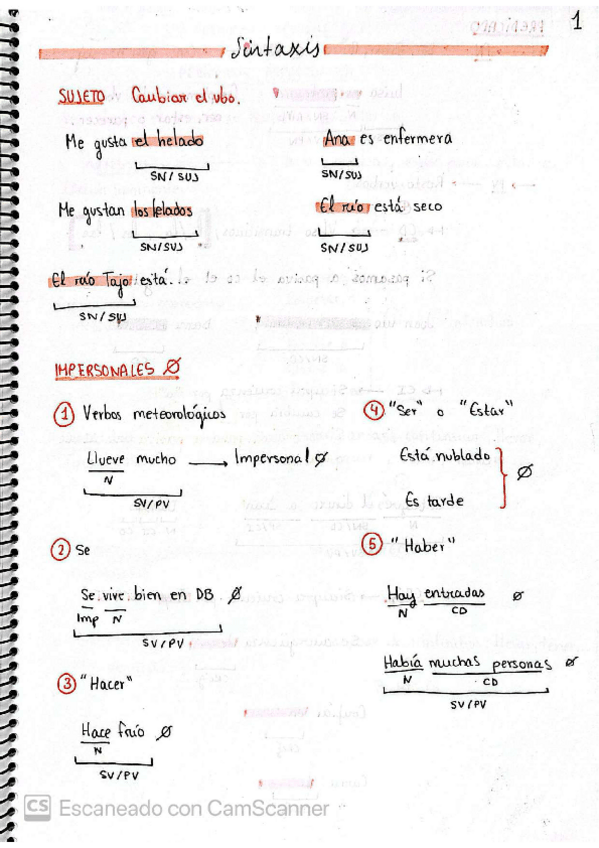 1
Sintaxis
SUJETO Cambiar el vbo.
Me gusta el helado
SN/SUJ
Ana es enfermera
SN/SUJ
Me gustan los helados
SN/SUJ
El río está seco
SN/SUJ
El río Tajo está...
SN/SUJ
IMPERSONALES Ø
1 Verbos meteorológicos
Llueve mucho → Impersonal Ø
N
SV/PV
2 Se
Se vive bien en DB Ø
Imp N
SV/PV
3 "Hacer"
Hace frío Ø
N
SV/PV
4 "Ser" o "Estar"
Está nublado
Es tarde
Ø
5 "Haber"
Hay entradas Ø
N CD
Había muchas personas Ø
N CD
SV/PV
CS Escaneado con CamScanner